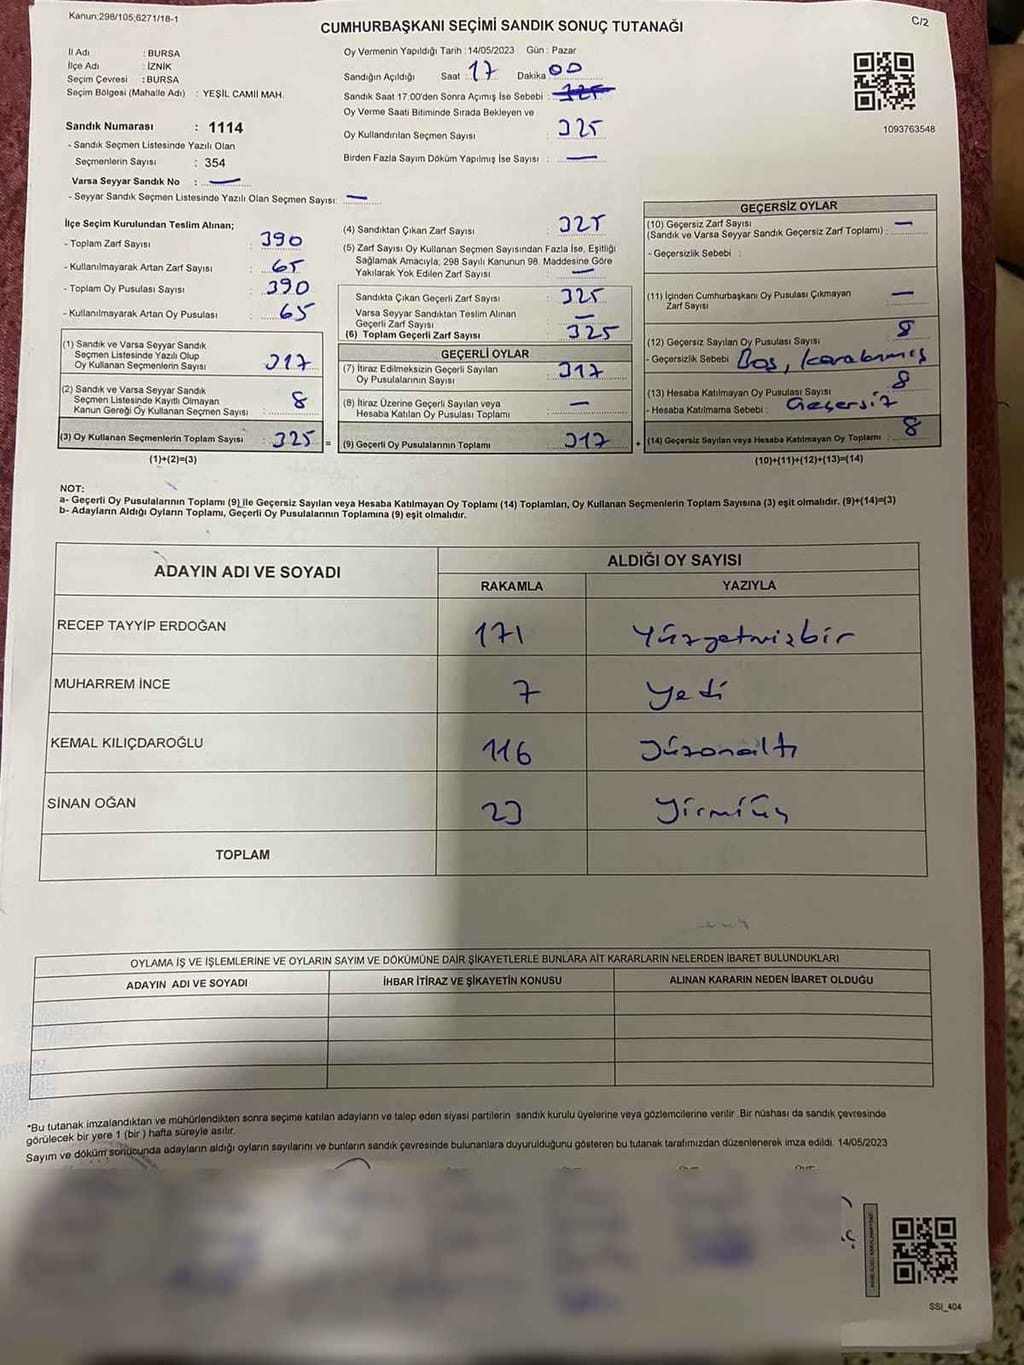 Kanun:298/105;6271/18-1
C/2
CUMHURBAŞKANI SEÇİMİ SANDIK SONUÇ TUTANAĞI
İl Adı : BURSA
İlçe Adı : İZNİK
Seçim Çevresi : BURSA
Seçim Bölgesi (Mahalle Adı) : YEŞİL CAMİİ MAH.
Sandık Numarası : 1114
- Sandık Seçmen Listesinde Yazılı Olan
Seçmenlerin Sayısı : 354
Varsa Seyyar Sandık No : —
- Seyyar Sandık Seçmen Listesinde Yazılı Olan Seçmen Sayısı: —
Oy Vermenin Yapıldığı Tarih : 14/05/2023 Gün : Pazar
Sandığın Açıldığı Saat : 17 Dakika : 00
Sandık Saat 17:00'den Sonra Açımış İse Sebebi : 325
Oy Verme Saati Bitiminde Sırada Bekleyen ve
Oy Kullandırılan Seçmen Sayısı : 325
Birden Fazla Sayım Döküm Yapılmış İse Sayısı : —
1093763548
İlçe Seçim Kurulundan Teslim Alınan;
- Toplam Zarf Sayısı : 390
- Kullanılmayarak Artan Zarf Sayısı : 65
- Toplam Oy Pusulası Sayısı : 390
- Kullanılmayarak Artan Oy Pusulası : 65
(1) Sandık ve Varsa Seyyar Sandık
Seçmen Listesinde Yazılı Olup
Oy Kullanan Seçmenlerin Sayısı : 317
(2) Sandık ve Varsa Seyyar Sandık
Seçmen Listesinde Kayıtlı Olmayan
Kanun Gereği Oy Kullanan Seçmen Sayısı : 8
(3) Oy Kullanan Seçmenlerin Toplam Sayısı : 325 =
(1)+(2)=(3)
(4) Sandıktan Çıkan Zarf Sayısı : 325
(5) Zarf Sayısı Oy Kullanan Seçmen Sayısından Fazla İse, Eşitliği
Sağlamak Amacıyla; 298 Sayılı Kanunun 98. Maddesine Göre
Yakılarak Yok Edilen Zarf Sayısı : —
Sandıkta Çıkan Geçerli Zarf Sayısı : 325
Varsa Seyyar Sandıktan Teslim Alınan
Geçerli Zarf Sayısı : —
(6) Toplam Geçerli Zarf Sayısı : 325
GEÇERLİ OYLAR
(7) İtiraz Edilmeksizin Geçerli Sayılan
Oy Pusulalarının Sayısı : 317
(8) İtiraz Üzerine Geçerli Sayılan veya
Hesaba Katılan Oy Pusulası Toplamı : —
(9) Geçerli Oy Pusulalarının Toplamı : 317 +
GEÇERSİZ OYLAR
(10) Geçersiz Zarf Sayısı
(Sandık ve Varsa Seyyar Sandık Geçersiz Zarf Toplamı) : —
- Geçersizlik Sebebi :
(11) İçinden Cumhurbaşkanı Oy Pusulası Çıkmayan
Zarf Sayısı : —
(12) Geçersiz Sayılan Oy Pusulası Sayısı : 8
- Geçersizlik Sebebi : Boş, karalanmış
(13) Hesaba Katılmayan Oy Pusulası Sayısı : 8
- Hesaba Katılmama Sebebi : Geçersiz
(14) Geçersiz Sayılan veya Hesaba Katılmayan Oy Toplamı : 8
(10)+(11)+(12)+(13)=(14)
NOT:
a- Geçerli Oy Pusulalarının Toplamı (9) ile Geçersiz Sayılan veya Hesaba Katılmayan Oy Toplamı (14) Toplamları, Oy Kullanan Seçmenlerin Toplam Sayısına (3) eşit olmalıdır. (9)+(14)=(3)
b- Adayların Aldığı Oyların Toplamı, Geçerli Oy Pusulalarının Toplamına (9) eşit olmalıdır.
ADAYIN ADI VE SOYADI
ALDIĞI OY SAYISI
RAKAMLA YAZIYLA
RECEP TAYYİP ERDOĞAN 171 Yüzyetmişbir
MUHARREM İNCE 7 Yedi
KEMAL KILIÇDAROĞLU 116 Yüzonaltı
SİNAN OĞAN 23 Yirmiüç
TOPLAM
OYLAMA İŞ VE İŞLEMLERİNE VE OYLARIN SAYIM VE DÖKÜMÜNE DAİR ŞİKAYETLERLE BUNLARA AİT KARARLARIN NELERDEN İBARET BULUNDUKLARI
ADAYIN ADI VE SOYADI İHBAR İTİRAZ VE ŞİKAYETİN KONUSU ALINAN KARARIN NEDEN İBARET OLDUĞU
*Bu tutanak imzalandıktan ve mühürlendikten sonra seçime katılan adayların ve talep eden siyasi partilerin sandık kurulu üyelerine veya gözlemcilerine verilir .Bir nüshası da sandık çevresinde
görülecek bir yere 1 (bir) hafta süreyle asılır.
Sayım ve döküm sonucunda adayların aldığı oyların sayılarını ve bunların sandık çevresinde bulunanlara duyurulduğunu gösteren bu tutanak tarafımızdan düzenlenerek imza edildi. 14/05/2023
SSI_404